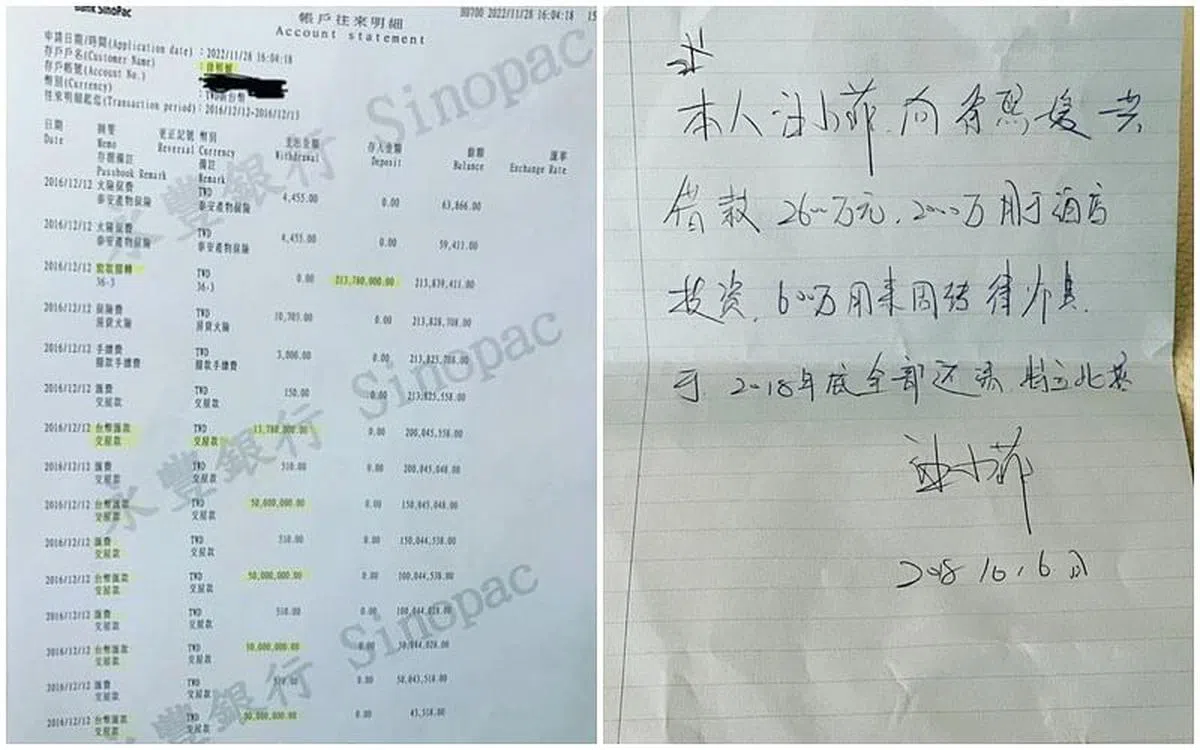 Bank SinoPac
帳戶往來明細
Account statement
2022/11/28 16:04:18
申請日期/時間(Application date) : 2022/11/28 16:04:18
存戶戶名(Customer Name)
存戶帳號(Account No.)
幣別(Currency) : TWD新台幣
往來明細起迄(Transaction period) : 2016/12/12-2016/12/13
日期 摘要 更正記號 幣別 支出金額 存入金額 餘額 匯率
Date Memo Reversal Currency Withdrawal Deposit Balance Exchange Rate
存摺備註 備註
Passbook Remark Remark
2016/12/12 火險保費 TWD 4,455.00 0.00 63,866.00
泰安產物保險 泰安產物保險
2016/12/12 火險保費 TWD 4,455.00 0.00 59,411.00
泰安產物保險 泰安產物保險
2016/12/12 放款撥轉 TWD 0.00 213,780,000.00 213,839,411.00
36-3 36-3
2016/12/12 保險費 TWD 10,703.00 0.00 213,828,708.00
房貸火險 房貸火險
2016/12/12 手續費 TWD 3,000.00 0.00 213,825,708.00
撥款手續費 撥款手續費
2016/12/12 匯費 TWD 150.00 0.00 213,825,558.00
交屋款 交屋款
2016/12/12 台幣匯款 TWD 13,780,000.00 0.00 200,045,558.00
交屋款 交屋款
2016/12/12 匯費 TWD 510.00 0.00 200,045,048.00
交屋款 交屋款
2016/12/12 台幣匯款 TWD 50,000,000.00 0.00 150,045,048.00
交屋款 交屋款
2016/12/12 匯費 TWD 510.00 0.00 150,044,538.00
交屋款 交屋款
2016/12/12 台幣匯款 TWD 50,000,000.00 0.00 100,044,538.00
交屋款 交屋款
2016/12/12 匯費 TWD 510.00 0.00 100,044,028.00
交屋款 交屋款
2016/12/12 台幣匯款 TWD 50,000,000.00 0.00 50,044,028.00
交屋款 交屋款
2016/12/12 匯費 TWD 510.00 0.00 50,043,518.00
交屋款 交屋款
2016/12/12 台幣匯款 TWD 50,000,000.00 0.00 43,518.00
交屋款 交屋款
永豐銀行 Sinopac
永豐銀行 Sinopac
永豐銀行 Sinopac
本人汪小菲向徐熙媛共
借款2600万元,2000万用于酒店
投资,600万用来周转
于2018年底全部还清
汪小菲
2018.10.16日